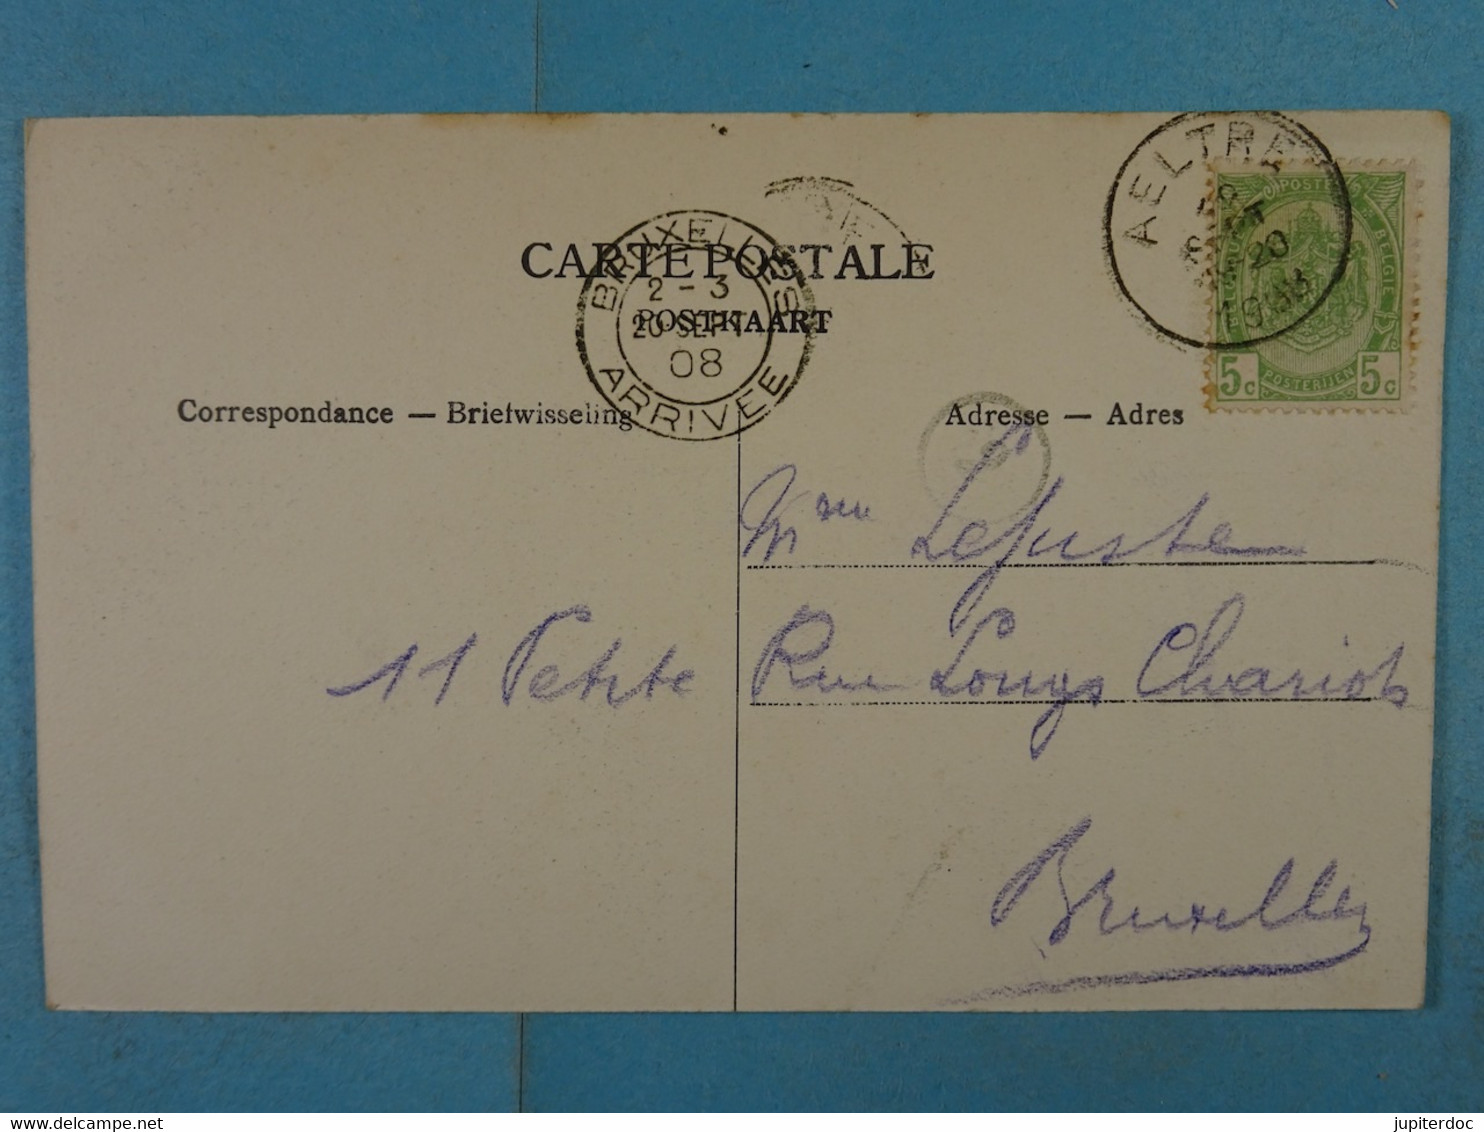 CARTE POSTALE
POSTKAART
BRUXELLES
2 - 3
20 SEPT
08
ARRIVEE
AELTRE
SEPT
20
1908
POSTES
BELGIE
5c POSTERIJEN 5c
Correspondance — Briefwisseling
Adresse — Adres
Mme Lejuste
11 Petite Rue Longs Chariots
Bruxelles
jupiterdoc